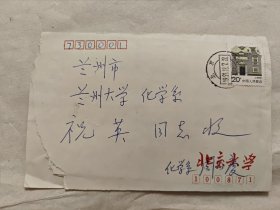 730001
20
中国人民邮政
兰州市
兰州大学 化学系
祝英 同志收
北京大学
化学系
100871